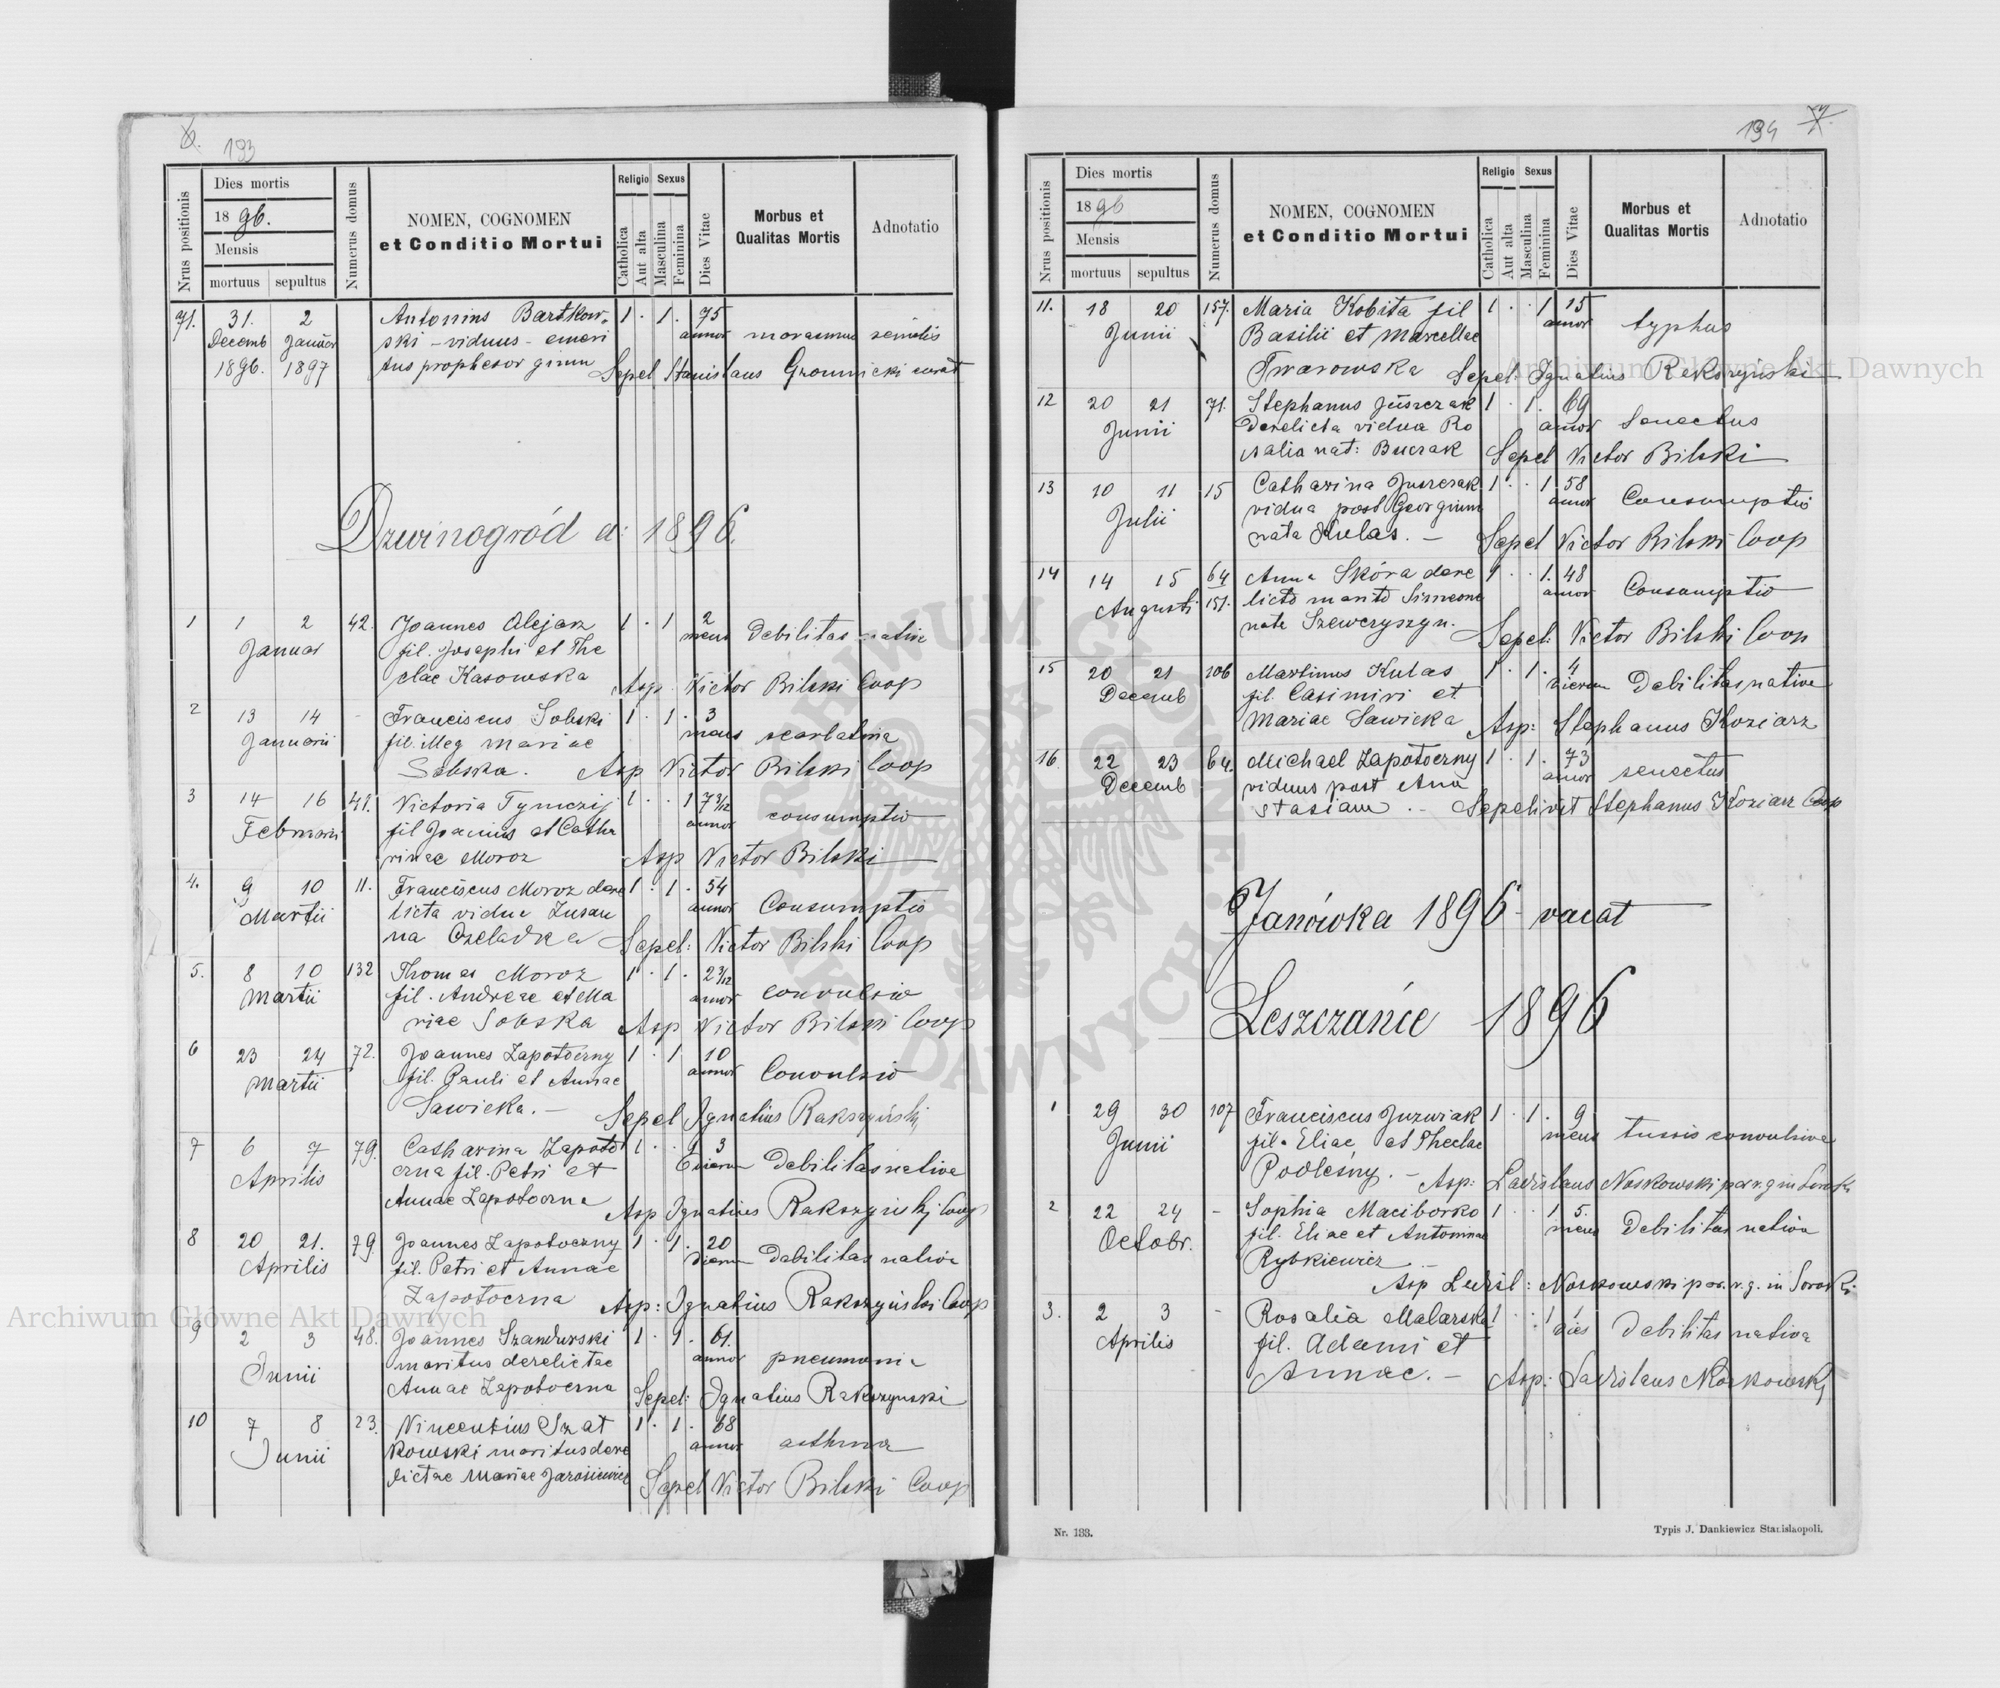 6. 193
Nrus positionis
Dies mortis
1896.
Mensis
mortuus sepultus
Numerus domus
NOMEN, COGNOMEN
et Conditio Mortui
Religio Sexus
Catholica
Aut alta
Masculina
Feminina
Dies Vitae
Morbus et
Qualitas Mortis
Adnotatio
71. 31. 2 Antonius Bartkow- 1 . 1 . 75
Decemb Januar ski - viduus - emeri annor marasmus senilis
1896. 1897 tus prophesor gimn Sepel Stanislaus Gromnicki curat
Dzwinogród a: 1896.
1 1 2 42. Joannes Olejarz 1 . 1 2
Januar fil. Josephi et The mens Debilitas nativa
clae Kasowska Asp. Victor Bilski Coop
2 13 14 - Franciscus Sobski 1 . 1 . 3
Januarii fil. illeg Mariae mens scarlatina
Sobska. Asp Victor Bilski Coop
3 14 16 Victoria Tymczij 1 . . 1 7 3/12
Februarii fil Joannis et Catha annor consumptio
rinae Moroz Asp Victor Bilski
4. 9 10 11. Franciscus Moroz dere 1 . 1 . 54
Martii licta vidua Zusan annor Consumptio
na Czeladka Sepel: Victor Bilski Coop
5. 8 10 132 Thomas Moroz 1 . 1 . 2 3/12
Martii fil. Andreae et Ma annor convulsio
riae Sobska Asp Victor Bilski Coop
6 23 24 72. Joannes Zapotoczny 1 . 1 10
Martii fil. Pauli et Annae annor Convulsio
Sawicka. - Sepel Ignatius Rakszyński
7 6 7 79. Catharina Zapoto 1 . . 1 3
Aprilis czna fil. Petri et dierum debilitas nativa
Annae Zapotoczna Asp Ignatius Rakszyński Coop
8 20 21. 79. Joannes Zapotoczny 1 . 1 . 20
Aprilis fil. Petri et Annae dierum debilitas nativa
Zapotoczna Asp: Ignatius Rakszyński Coop
9 2 3 48. Joannes Szandurski 1 . 1 . 61.
Junii maritus derelictae annor pneumonia
Annae Zapotoczna Sepel: Ignatius Rakszynski
10 7 8 23. Vincentius Szat 1 . 1 . 68
Junii kowski maritus dere annor asthma
lictae Mariae Jarosiewicz Sepel Victor Bilski Coop
194 7.
Nrus positionis
Dies mortis
1896
Mensis
mortuus sepultus
Numerus domus
NOMEN, COGNOMEN
et Conditio Mortui
Religio Sexus
Catholica
Aut alta
Masculina
Feminina
Dies Vitae
Morbus et
Qualitas Mortis
Adnotatio
11. 18 20 157. Maria Kobita fil 1 . . 1 15
Junii Basilii et Marcellae annor typhus
Twarowska Sepel: Ignatius Rakszyński
12 20 21 71. Stephanus Juszczak 1 . 1 . 69
Junii Derelicta vidua Ro annor Senectus
salia nat: Buczak Sepel Victor Bilski
13 10 11 15 Catharina Juszczak 1 . . 1 58
Julii vidua post Georgium annor Consumptio
nata Kulas. - Sepel Victor Bilski Coop
14 14 15 64 Anna Skóra dere 1 . . 1. 48
Augusti 151. licto marito Simeone annor Consumptio
nata Szewczyszyn. Sepel: Victor Bilski Coop
15 20 21 106 Martinus Kulas 1 . 1 . 4
Decemb fil. Casimiri et dierum Debilitas nativa
Mariae Sawicka Asp: Stephanus Koziarz
16. 22 23 64. Michael Zapotoczny 1 . 1 . 73
Decemb viduus post Ana annor senectus
stasiam. - Sepelivit Stephanus Koziarz Coop
Janówka 1896 - vacat
Leszczańce 1896
1 29 30 107 Franciscus Juzwiak 1 . 1 . 9
Junii fil. Eliae et Theclae mens tussis convulsiva
Podleśny. - Asp: Ladislaus Noskowski par. r. g. in
2 22 24 - Sophia Maciborko 1 . . 1 5.
Octobr. fil. Eliae et Antoninae mens Debilitas nativa
Rybkiewicz - Asp Ladisl: Noskowski par. r. g. in
3. 2 3 - Rosalia Malarska 1 . . 1 1
Aprilis fil. Adami et dies Debilitas nativa
Annae. - Asp: Ladislaus Noskowski
Nr. 133. Typis J. Dankiewicz Stanislaopoli.
Archiwum Główne Akt Dawnych
Archiwum Główne Akt Dawnych
ARCHIWUM GŁÓWNE AKT DAWNYCH